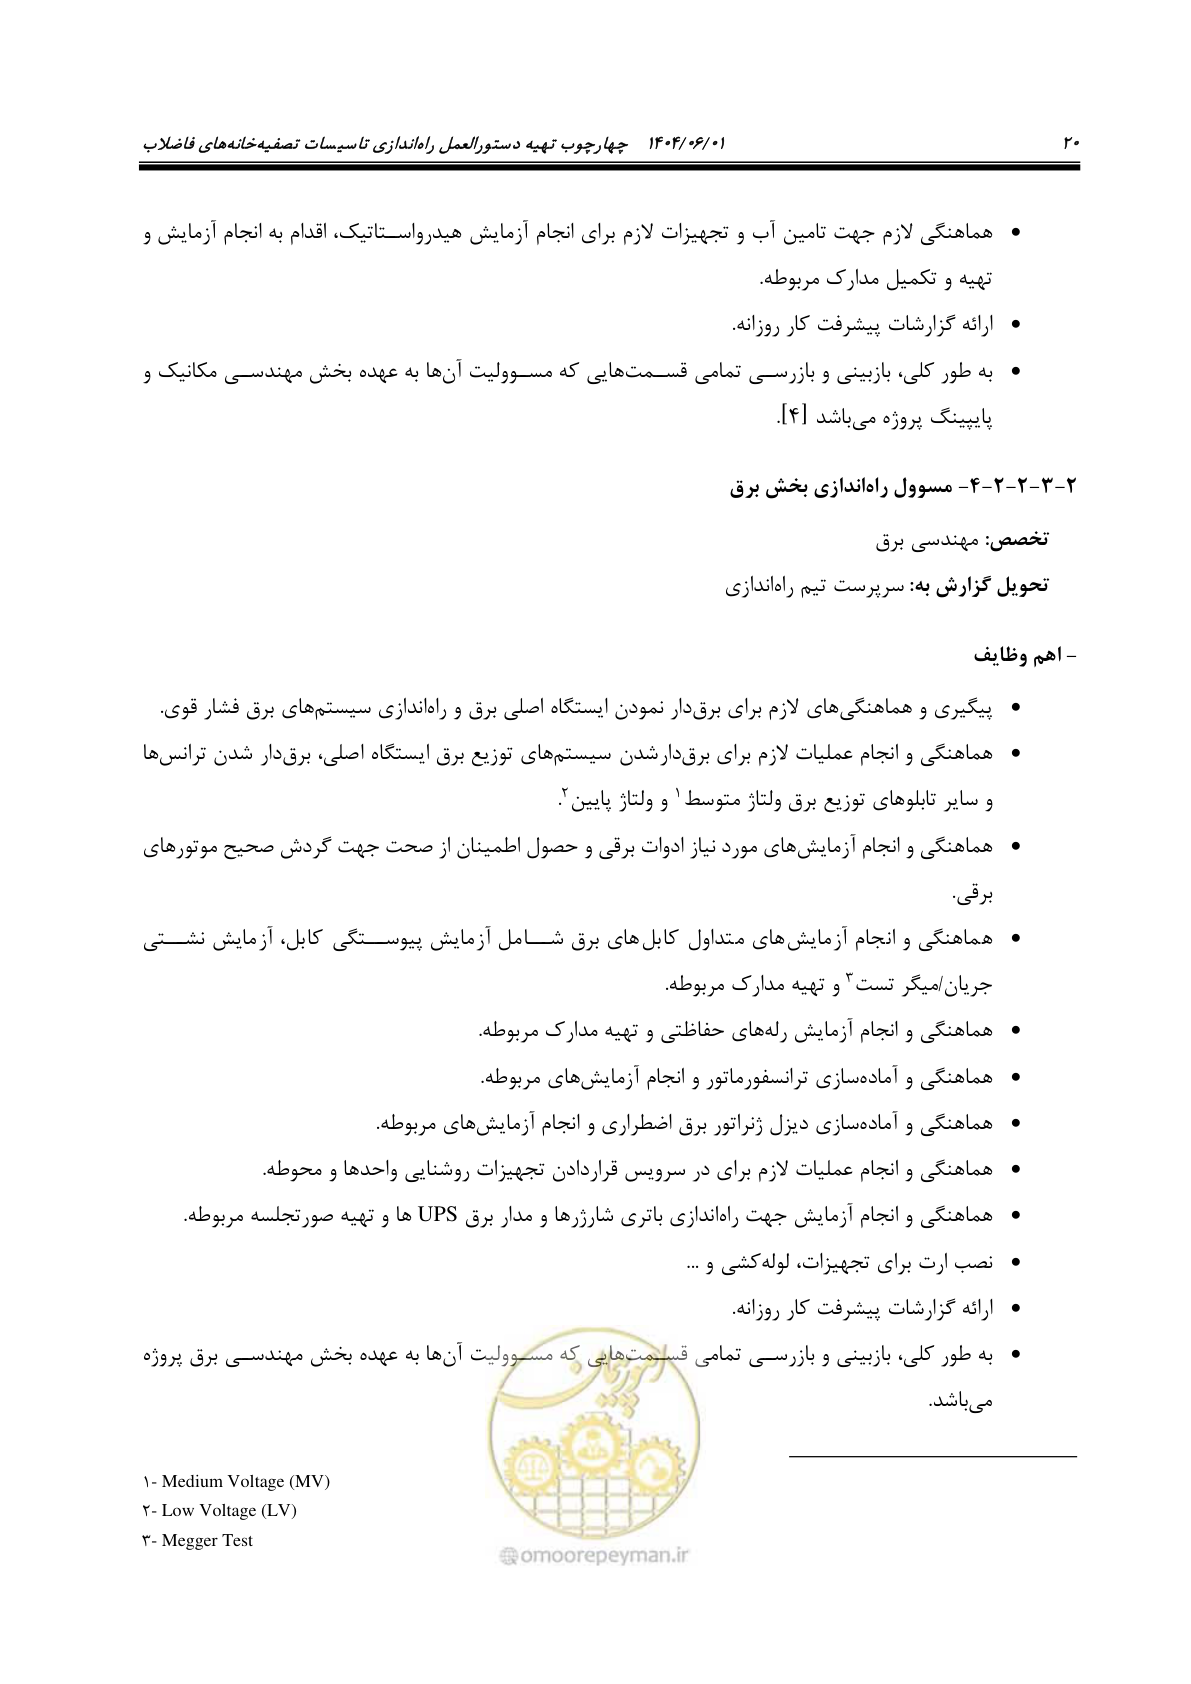 ۲۰ ۱۴۰۴/۰۶/۰۱ چهارچوب تهیه دستورالعمل راه‌اندازی تاسیسات تصفیه‌خانه‌های فاضلاب
• هماهنگی لازم جهت تامین آب و تجهیزات لازم برای انجام آزمایش هیدرواستاتیک، اقدام به انجام آزمایش و
تهیه و تکمیل مدارک مربوطه.
• ارائه گزارشات پیشرفت کار روزانه.
• به طور کلی، بازبینی و بازرسی تمامی قسمت‌هایی که مسوولیت آن‌ها به عهده بخش مهندسی مکانیک و
پایپینگ پروژه می‌باشد [۴].
۲-۳-۲-۲-۴- مسوول راه‌اندازی بخش برق
تخصص: مهندسی برق
تحویل گزارش به: سرپرست تیم راه‌اندازی
- اهم وظایف
• پیگیری و هماهنگی‌های لازم برای برق‌دار نمودن ایستگاه اصلی برق و راه‌اندازی سیستم‌های برق فشار قوی.
• هماهنگی و انجام عملیات لازم برای برق‌دارشدن سیستم‌های توزیع برق ایستگاه اصلی، برق‌دار شدن ترانس‌ها
و سایر تابلوهای توزیع برق ولتاژ متوسط۱ و ولتاژ پایین۲.
• هماهنگی و انجام آزمایش‌های مورد نیاز ادوات برقی و حصول اطمینان از صحت جهت گردش صحیح موتورهای
برقی.
• هماهنگی و انجام آزمایش‌های متداول کابل‌های برق شامل آزمایش پیوستگی کابل، آزمایش نشتی
جریان/میگر تست۳ و تهیه مدارک مربوطه.
• هماهنگی و انجام آزمایش رله‌های حفاظتی و تهیه مدارک مربوطه.
• هماهنگی و آماده‌سازی ترانسفورماتور و انجام آزمایش‌های مربوطه.
• هماهنگی و آماده‌سازی دیزل ژنراتور برق اضطراری و انجام آزمایش‌های مربوطه.
• هماهنگی و انجام عملیات لازم برای در سرویس قراردادن تجهیزات روشنایی واحدها و محوطه.
• هماهنگی و انجام آزمایش جهت راه‌اندازی باتری شارژرها و مدار برق UPS ها و تهیه صورتجلسه مربوطه.
• نصب ارت برای تجهیزات، لوله‌کشی و ...
• ارائه گزارشات پیشرفت کار روزانه.
• به طور کلی، بازبینی و بازرسی تمامی قسمت‌هایی که مسوولیت آن‌ها به عهده بخش مهندسی برق پروژه
می‌باشد.
امور پیمان
۱- Medium Voltage (MV)
۲- Low Voltage (LV)
۳- Megger Test
omoorepeyman.ir